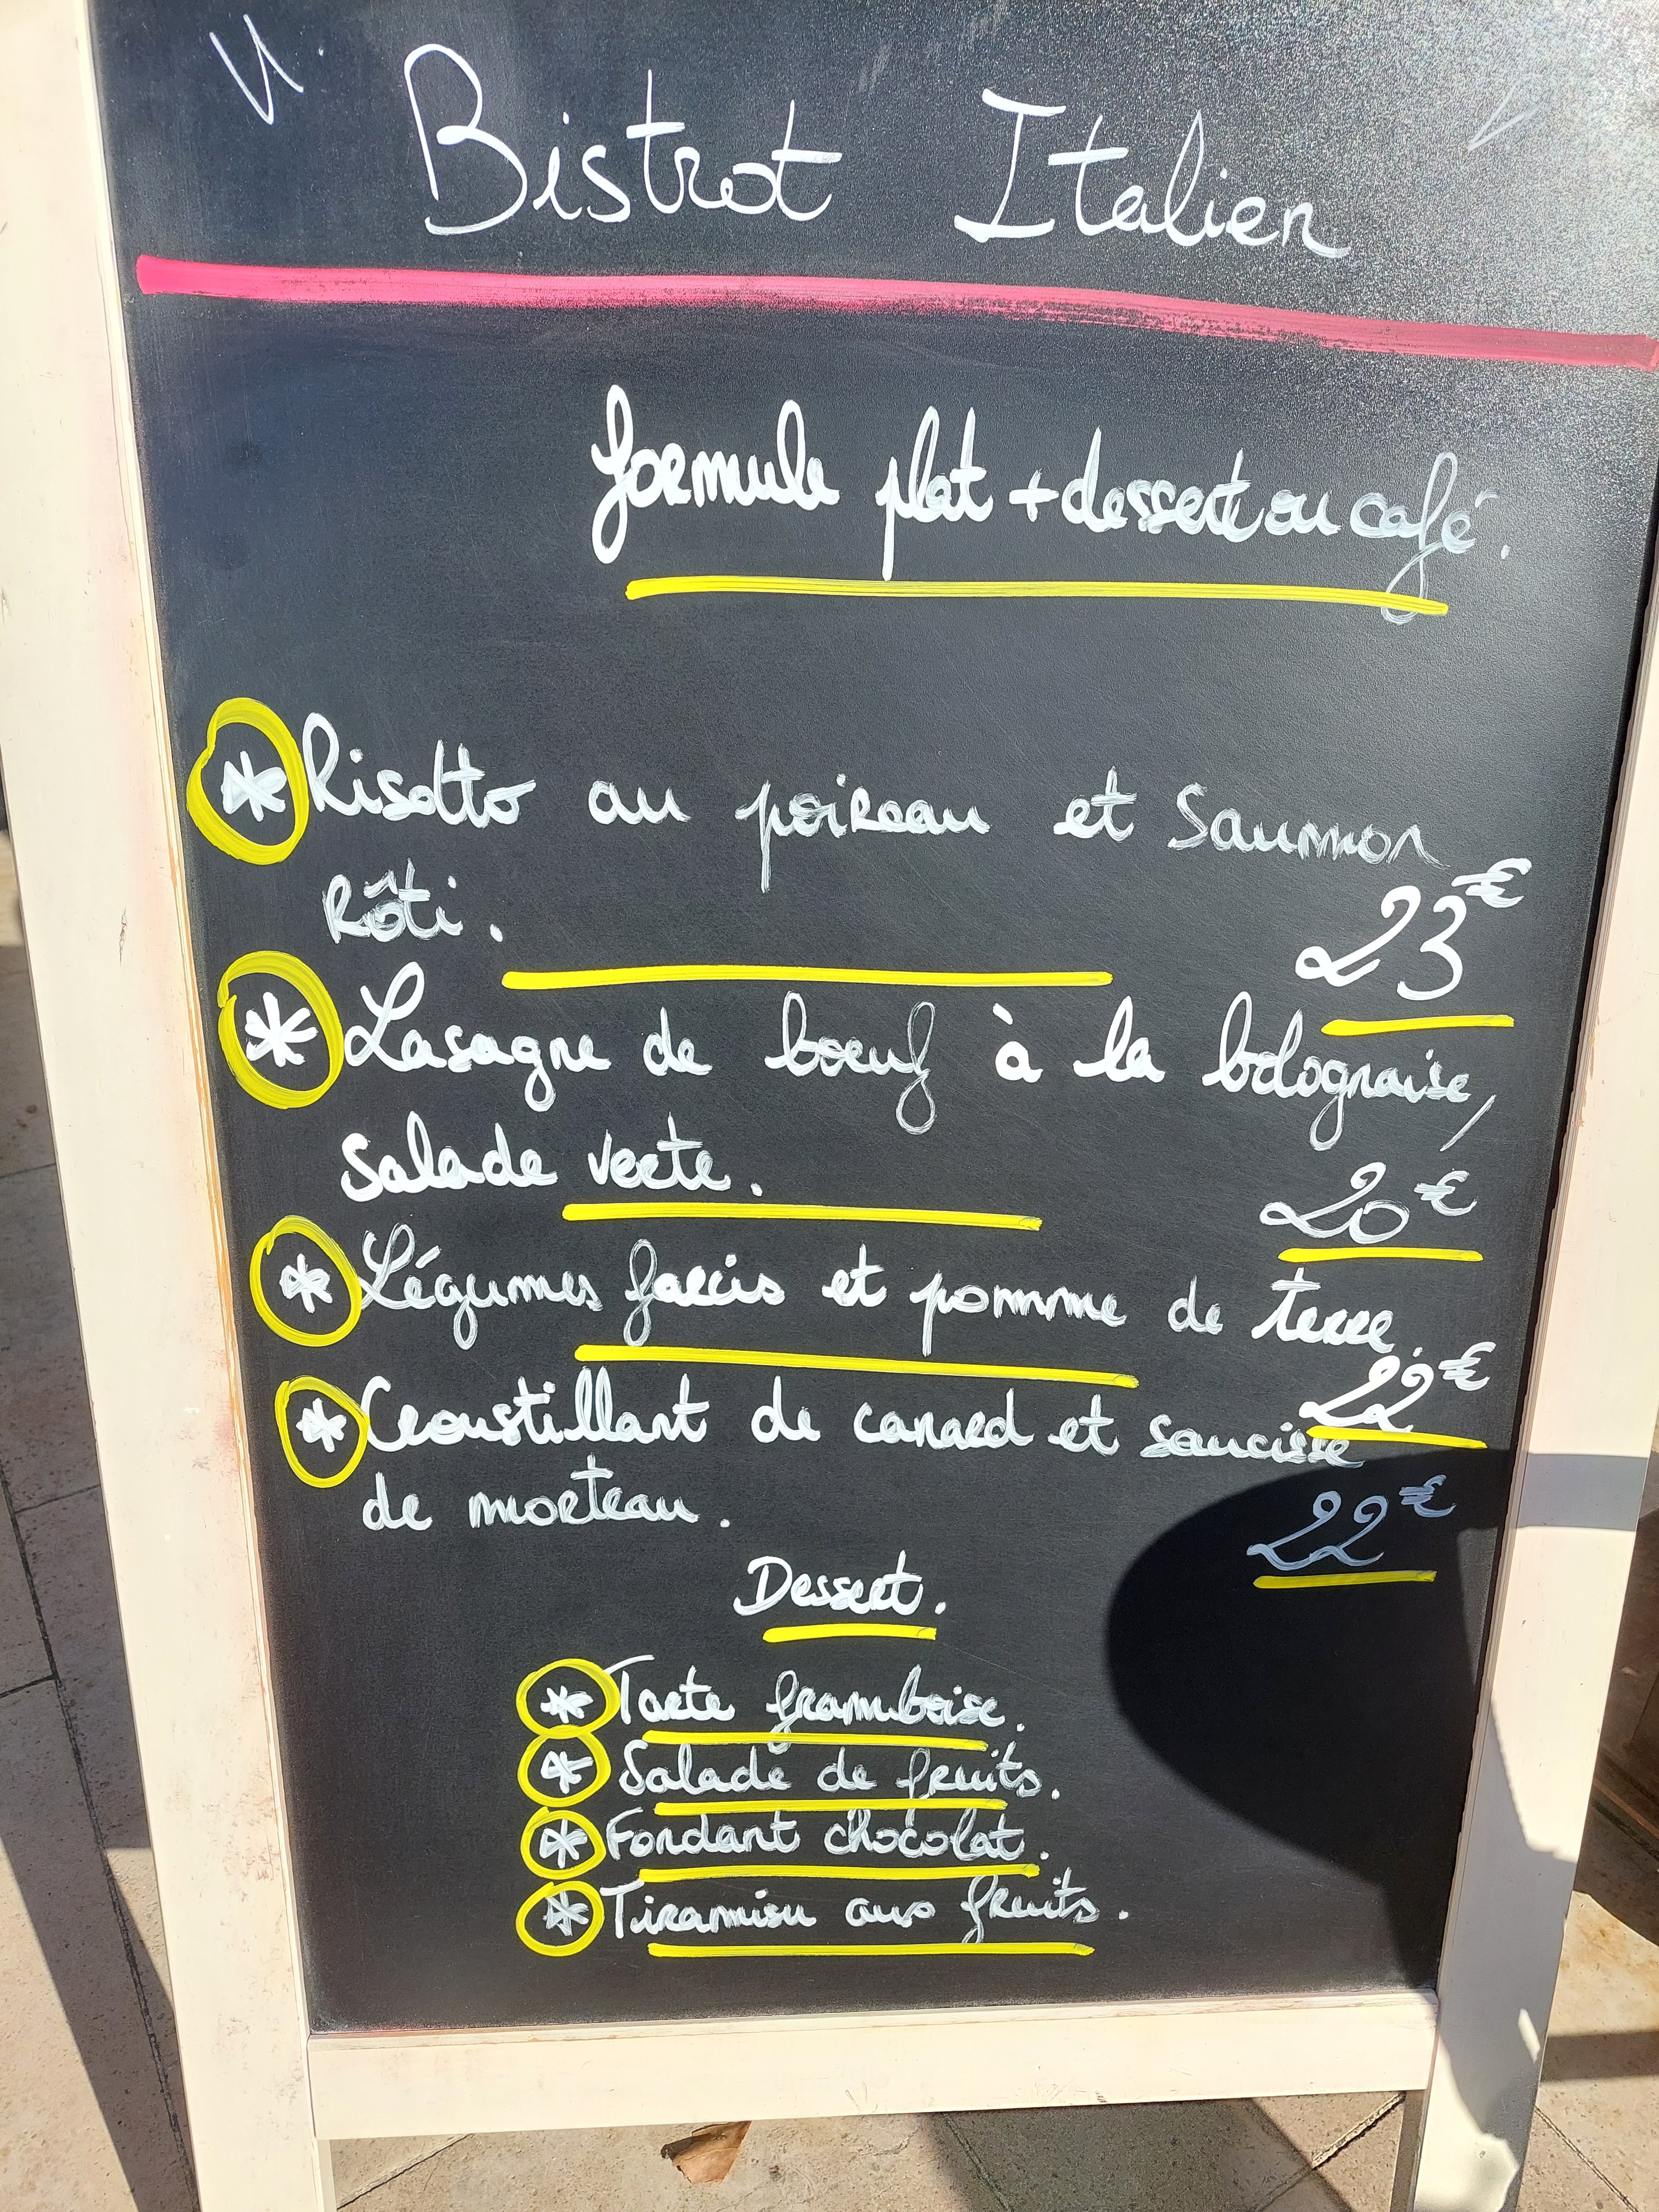 Bistrot Italien
formule plat + dessert ou café.
* Risotto au poireau et Saumon
Rôti.
23€
* Lasagne de boeuf à la bolognaise,
Salade verte.
20€
* Légumes farcis et pomme de terre.
22€
* Croustillant de canard et saucisse
de morteau.
22€
Dessert.
* Tarte framboise.
* Salade de fruits.
* Fondant chocolat.
* Tiramisu aux fruits.